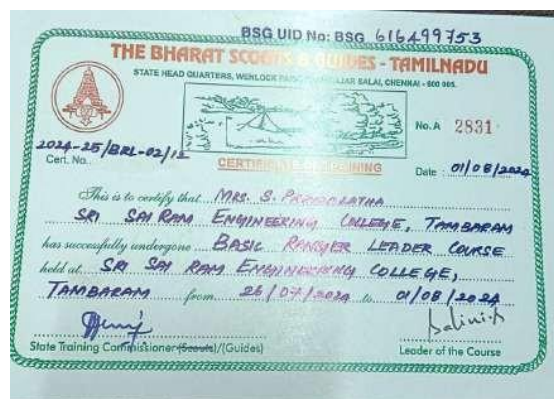 BSG UID No: BSG 616499753
THE BHARAT SCOUTS & GUIDES - TAMILNADU
STATE HEAD QUARTERS, WENLOCK SALAI, CHENNAI - 600 005.
No.A 2831
2024-25/BRL-02/12
Cert. No.
CERTIFICATE OF TRAINING
Date : 01/08/2024
This is to certify that MRS. S.
SRI SAI RAM ENGINEERING COLLEGE, TAMBARAM
has successfully undergone BASIC RANGER LEADER COURSE
held at SRI SAI RAM ENGINEERING COLLEGE,
TAMBARAM from 26/07/2024 to 01/08/2024
State Training Commissioner (Scouts)/(Guides)
Leader of the Course